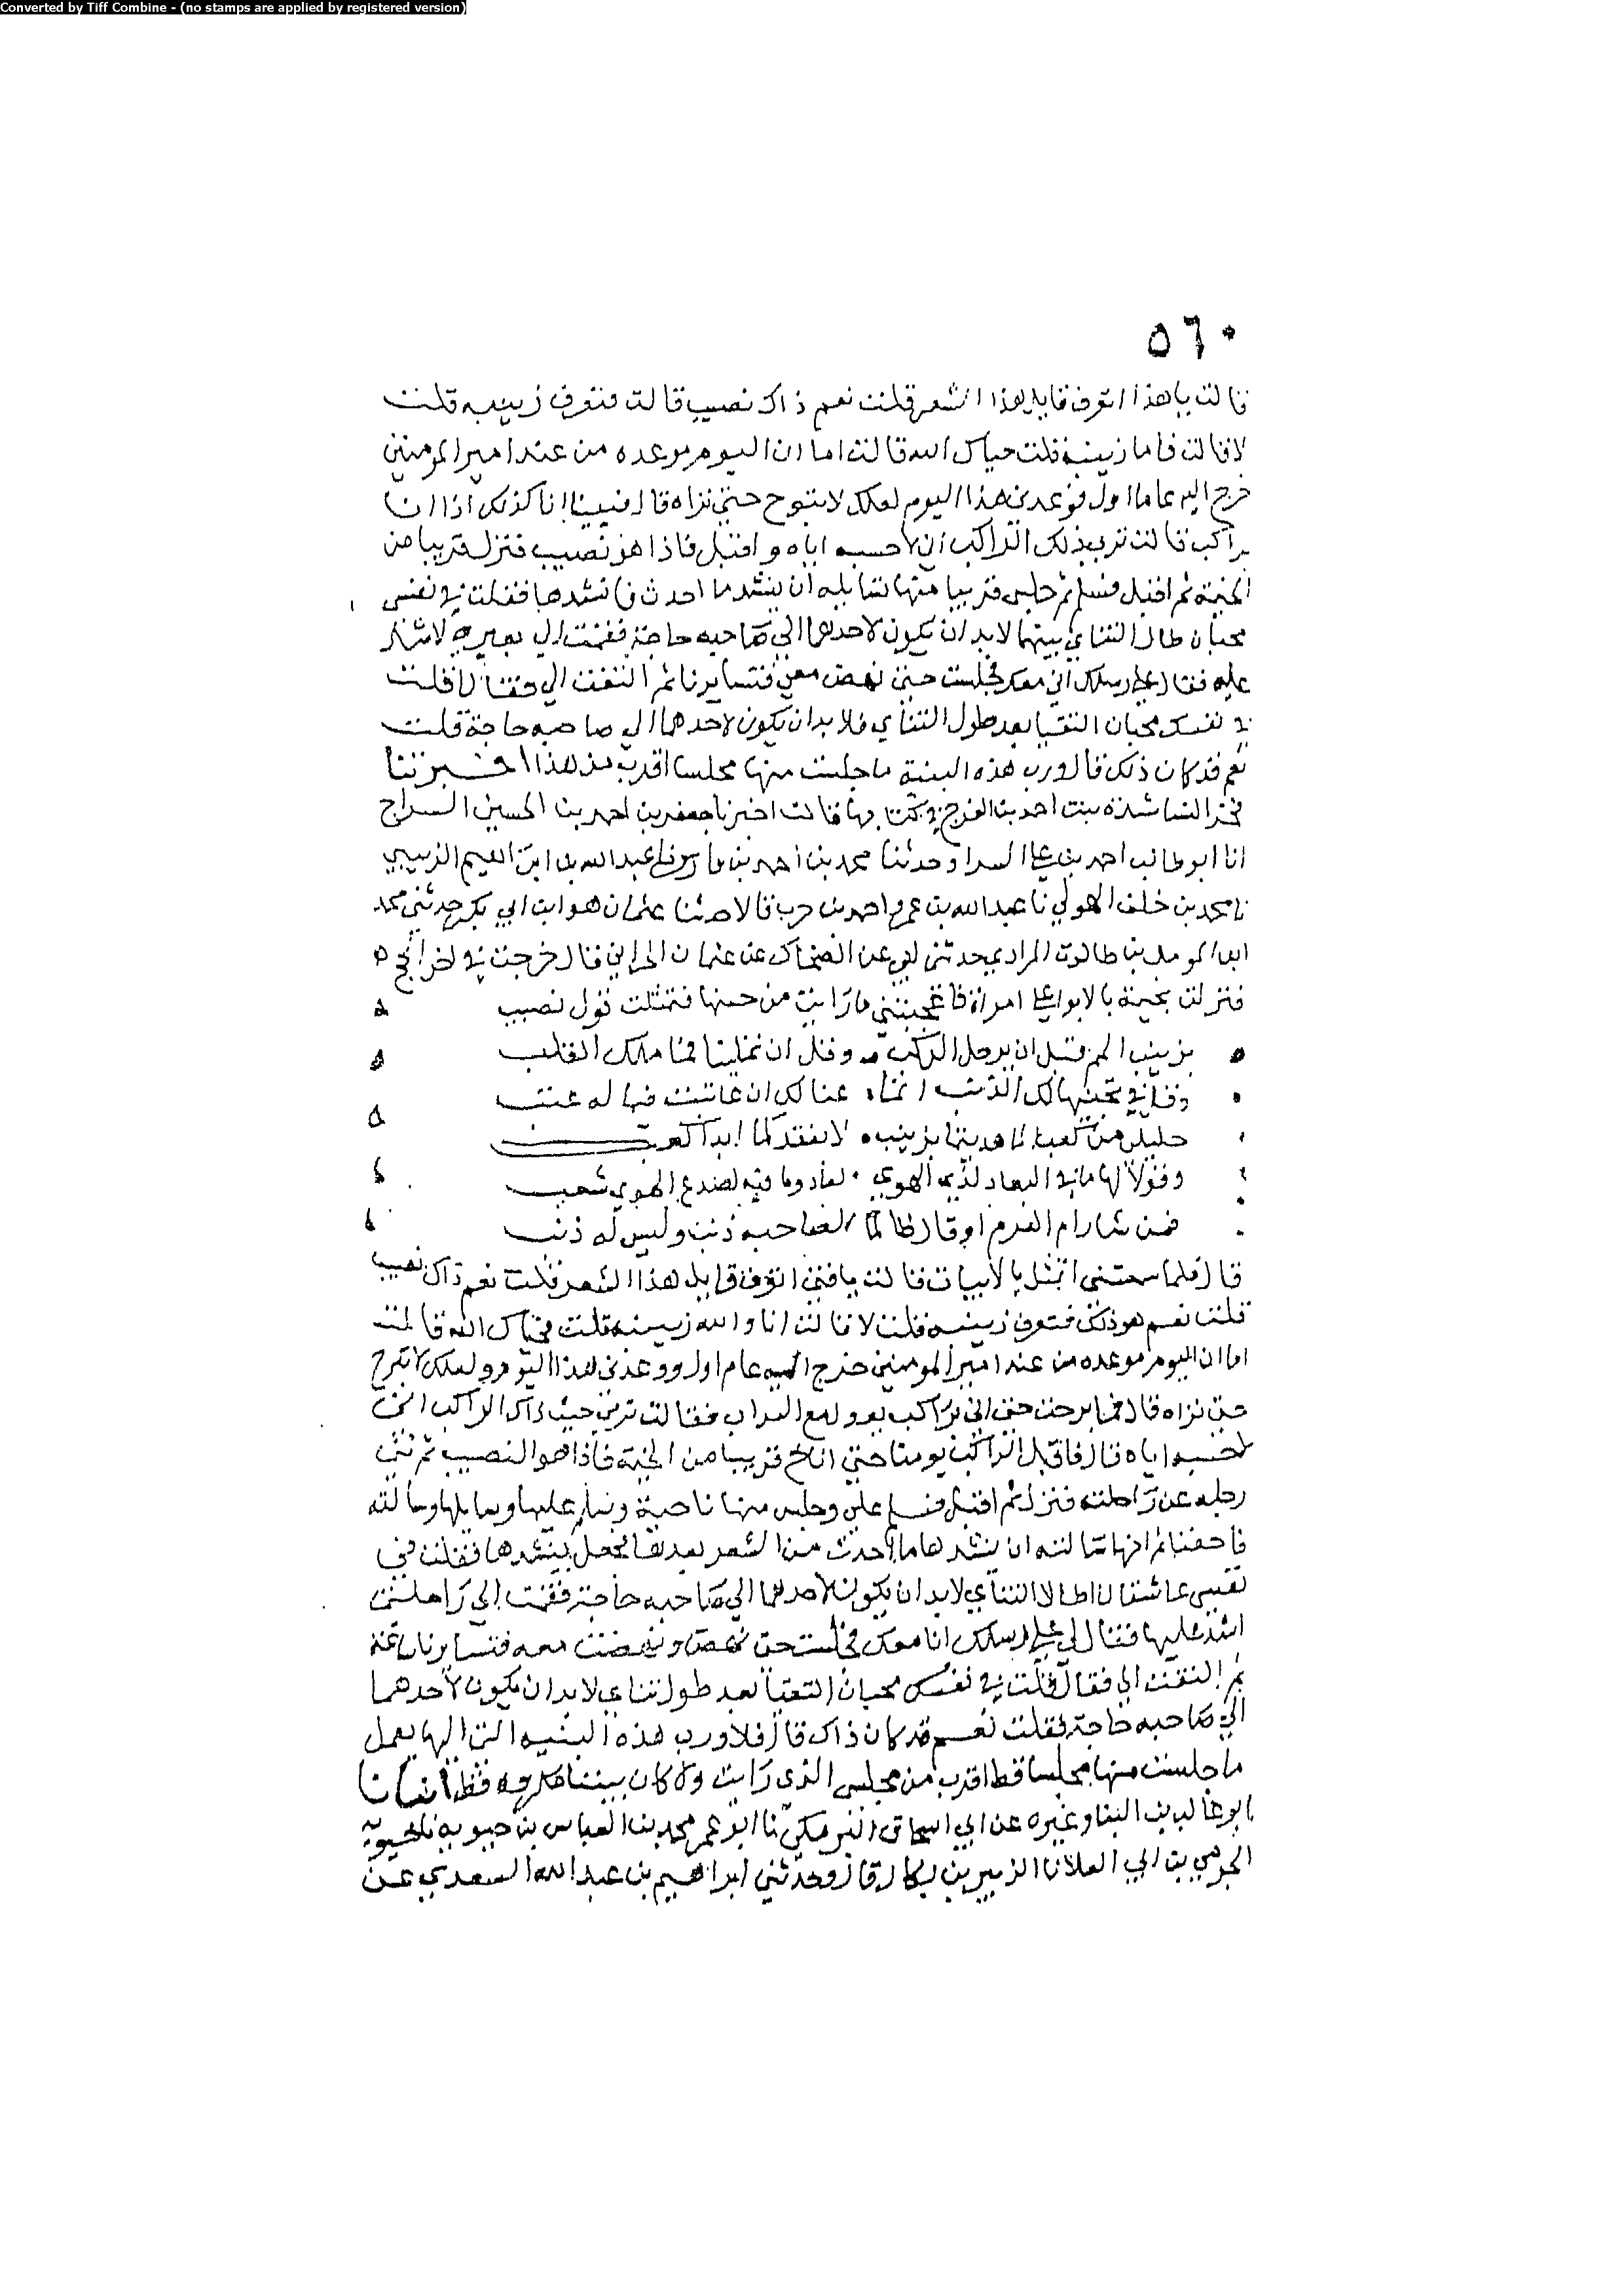 Converted by Tiff Combine - (no stamps are applied by registered version)
٥٦٠
قالت يا هذا اتعرف قايل هذا الشعر قلت نعم ذاك نصيب قالت فتعرف زينبه قلت
لا قالت فانا زينبه قلت حياك الله قالت اما ان اليوم موعده من عند امير المومنين
خرج اليه عاما اول فوعدني هذا اليوم لعلك لا تبرح حتى نراه قال فبينا انا كذلك اذا انا
براكب قالت ترى ذلك الراكب اني لاحسبه اياه واقبل فاذا هو نصيب فنزل قريبا من
الخيمة ثم اقبل فسلم ثم جلس قريبا منها تسايله ان ينشد ما احدث فانشدها فقلت في نفسي
محبان طال التناي بينهما لا بد ان يكون لاحدهما الى صاحبه حاجة فقمت الى بعيري لاشد
عليه فقال على رسلك اني معك فجلست حتى نهض معي فتسايرنا ثم التفت الي فقال اقلت
في نفسك محبان التقيا بعد طول التناي فلا بد ان يكون لاحدهما الى صاحبه حاجة قلت
نعم قد كان ذلك قال ورب هذه البنية ما جلست منها مجلسا اقرب من هذا اخبرتنا
فخر النسا شهدة بنت احمد بن الفرج في كتابها قالت اخبرنا جعفر بن احمد بن الحسين السراج
انا ابو طالب احمد بن علي السوا وحدثنا محمد بن احمد بن فارس نا عبد الله بن ابراهيم الزبيبي
نا محمد بن خلف الحولي نا عبد الله بن عمرو احمد بن حرب قالا حدثنا عثمان هو ابن ابي بكر حدثني محمد
ابن المومل بن طالوت المرادي حدثني ابي عن الضحاك عن عثمان الحزامي قال خرجت في اخر الحج
فنزلت بخيمة بالابوا على امراة فاعجبتني ما رايت من حسنها فتمثلت قول نصيب
بزينب المم قبل ان يرحل الركب وقل ان تملينا فما ملك القلب
وقل في تجنيها لك الذنب انما عتابك ان عاتبت فيما له عتب
خليلي من كعب الما هديتما بزينب لا تفقدكما ابدا كعب
وقولا لها ما في البعاد لذي الهوى لعاد وما فيه لصدع الهوى شعب
فمن شا رام الصرم او قال ظالما لصاحبه ذنب وليس له ذنب
قال فلما سمعتني اتمثل بالابيات قالت يا فتى اتعرف قايل هذا الشعر قلت نعم ذاك نصيب
قلت نعم هو ذلك فتعرف زينبه قلت لا قالت انا والله زينبه قلت فحياك الله قالت
اما ان اليوم موعده من عند امير المومنين خرج اليه عام اول ووعدني هذا اليوم ولعلك لا تبرح
حتى نراه قال فما برحت حتى اني براكب يزول مع السراب فقالت ترى خبب ذاك الراكب اني
لاحسبه اياه قال فاقبل الراكب يومنا حتى اناخ قريبا من الخيمة فاذا هو النصيب ثم ثنى
رجله عن راحلته فنزل ثم اقبل فسلم علي وجلس منها ناحية وسلم عليها وسايلها وسالته
فاحفيا ثم انها سالته ان ينشدها ما احدث من الشعر بعدنا فجعل ينشدها فقلت في
نفسي عاشقان اطالا التناي لا بد ان يكون لاحدهما الى صاحبه حاجة فقمت الى راحلتي
اشد عليها فقال لي على رسلك انا معك فجلست حتى نهض ونهضت معه فتسايرنا ساعة
ثم التفت الي فقال قلت في نفسك محبان التقيا بعد طول تناي لا بد ان يكون لاحدهما
الى صاحبه حاجة فقلت نعم قد كان ذاك قال فلا ورب هذه البنيه التي اليها يعمل
ما جلست منها مجلسا قط اقرب من مجلسي الذي رايت ولا كان بيننا مكروه قط انبانا
ابو غالب بن البنا وغيره عن ابي اسحاق البرمكي نا ابو عمر محمد بن العباس بن حيويه نا
الحرمي بن ابي العلا نا الزبير بن بكار قال وحدثني ابراهيم بن عبد الله السعدي عن